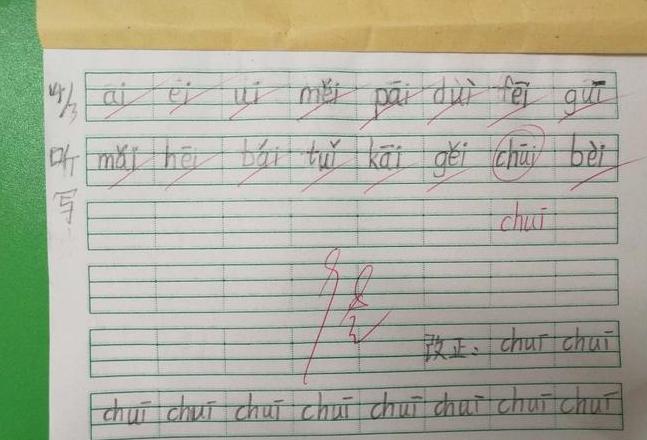 4/3 ai ei ui měi pāi duì fēi guī
听 mǎi hēi bái tuǐ kāi gěi chūi bèi
写 chuī
改正： chuī chuī
chuī chuī chuī chuī chuī chuī chuī chuī